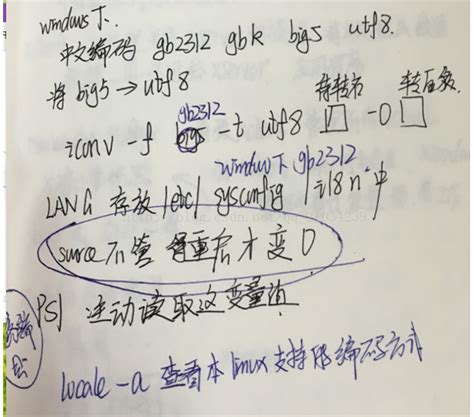 windows下.
中文编码 gb2312 gbk big5 utf8.
将 big5 → utf8
gb2312
待转前 转后家
iconv -f big5 -t utf8 -o
windows下 gb2312
LANG 存放 /etc/sysconfig/i18n 中
source 不管 得重启才变
PS1 主动读取这变量值
locale -a 查看本linux支持的编码方式